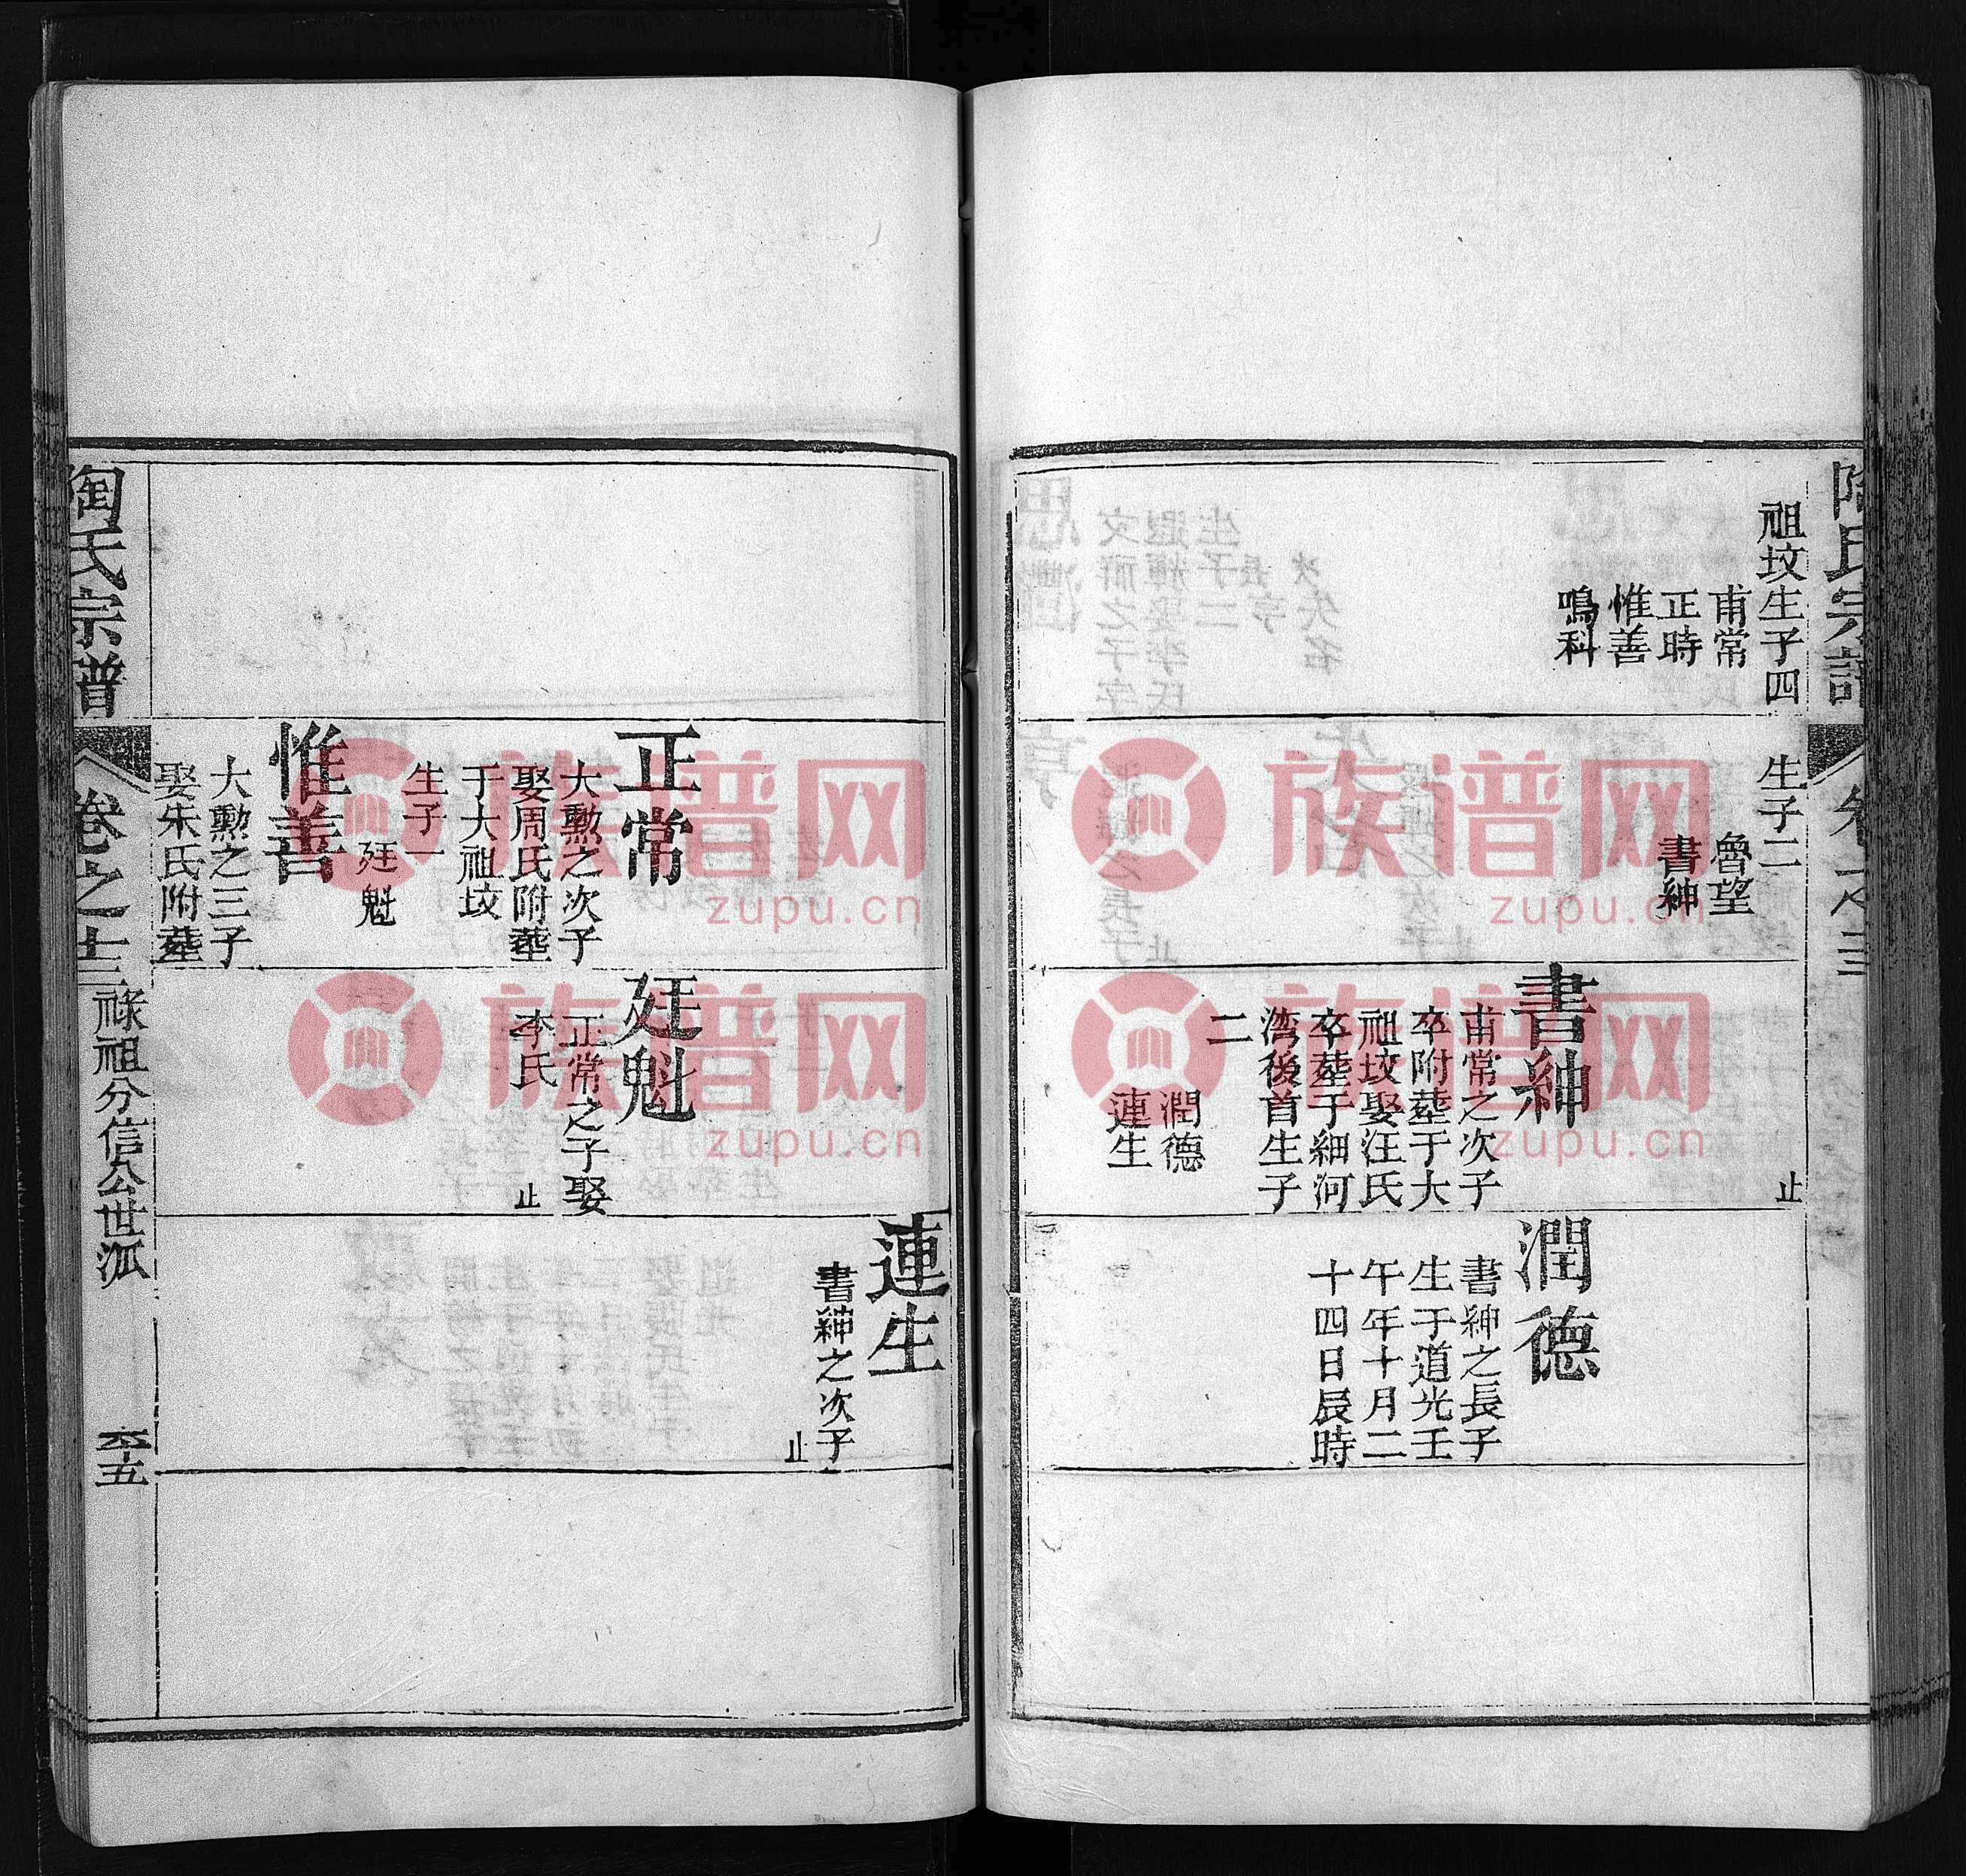 祖坟生子四
甫常
正時
惟善
鳴科
生子二
魯望
書紳
止
書紳
甫常之次子
卒附塟于大
祖坟娶汪氏
卒塟于細河
湾後首生子
二
潤德
連生
潤德
書紳之長子
生于道光壬
午年十月二
十四日辰時
正常
大勲之次子
娶周氏附塟
于大祖坟
生子一
廷魁
惟善
大勲之三子
娶朱氏附塟
廷魁
正常之子娶
李氏
止
連生
書紳之次子
止
陶氏宗譜
卷之十三
祿祖分信公世派
族谱网
zupu.cn
族谱网
zupu.cn
族谱网
zupu.cn
族谱网
zupu.cn